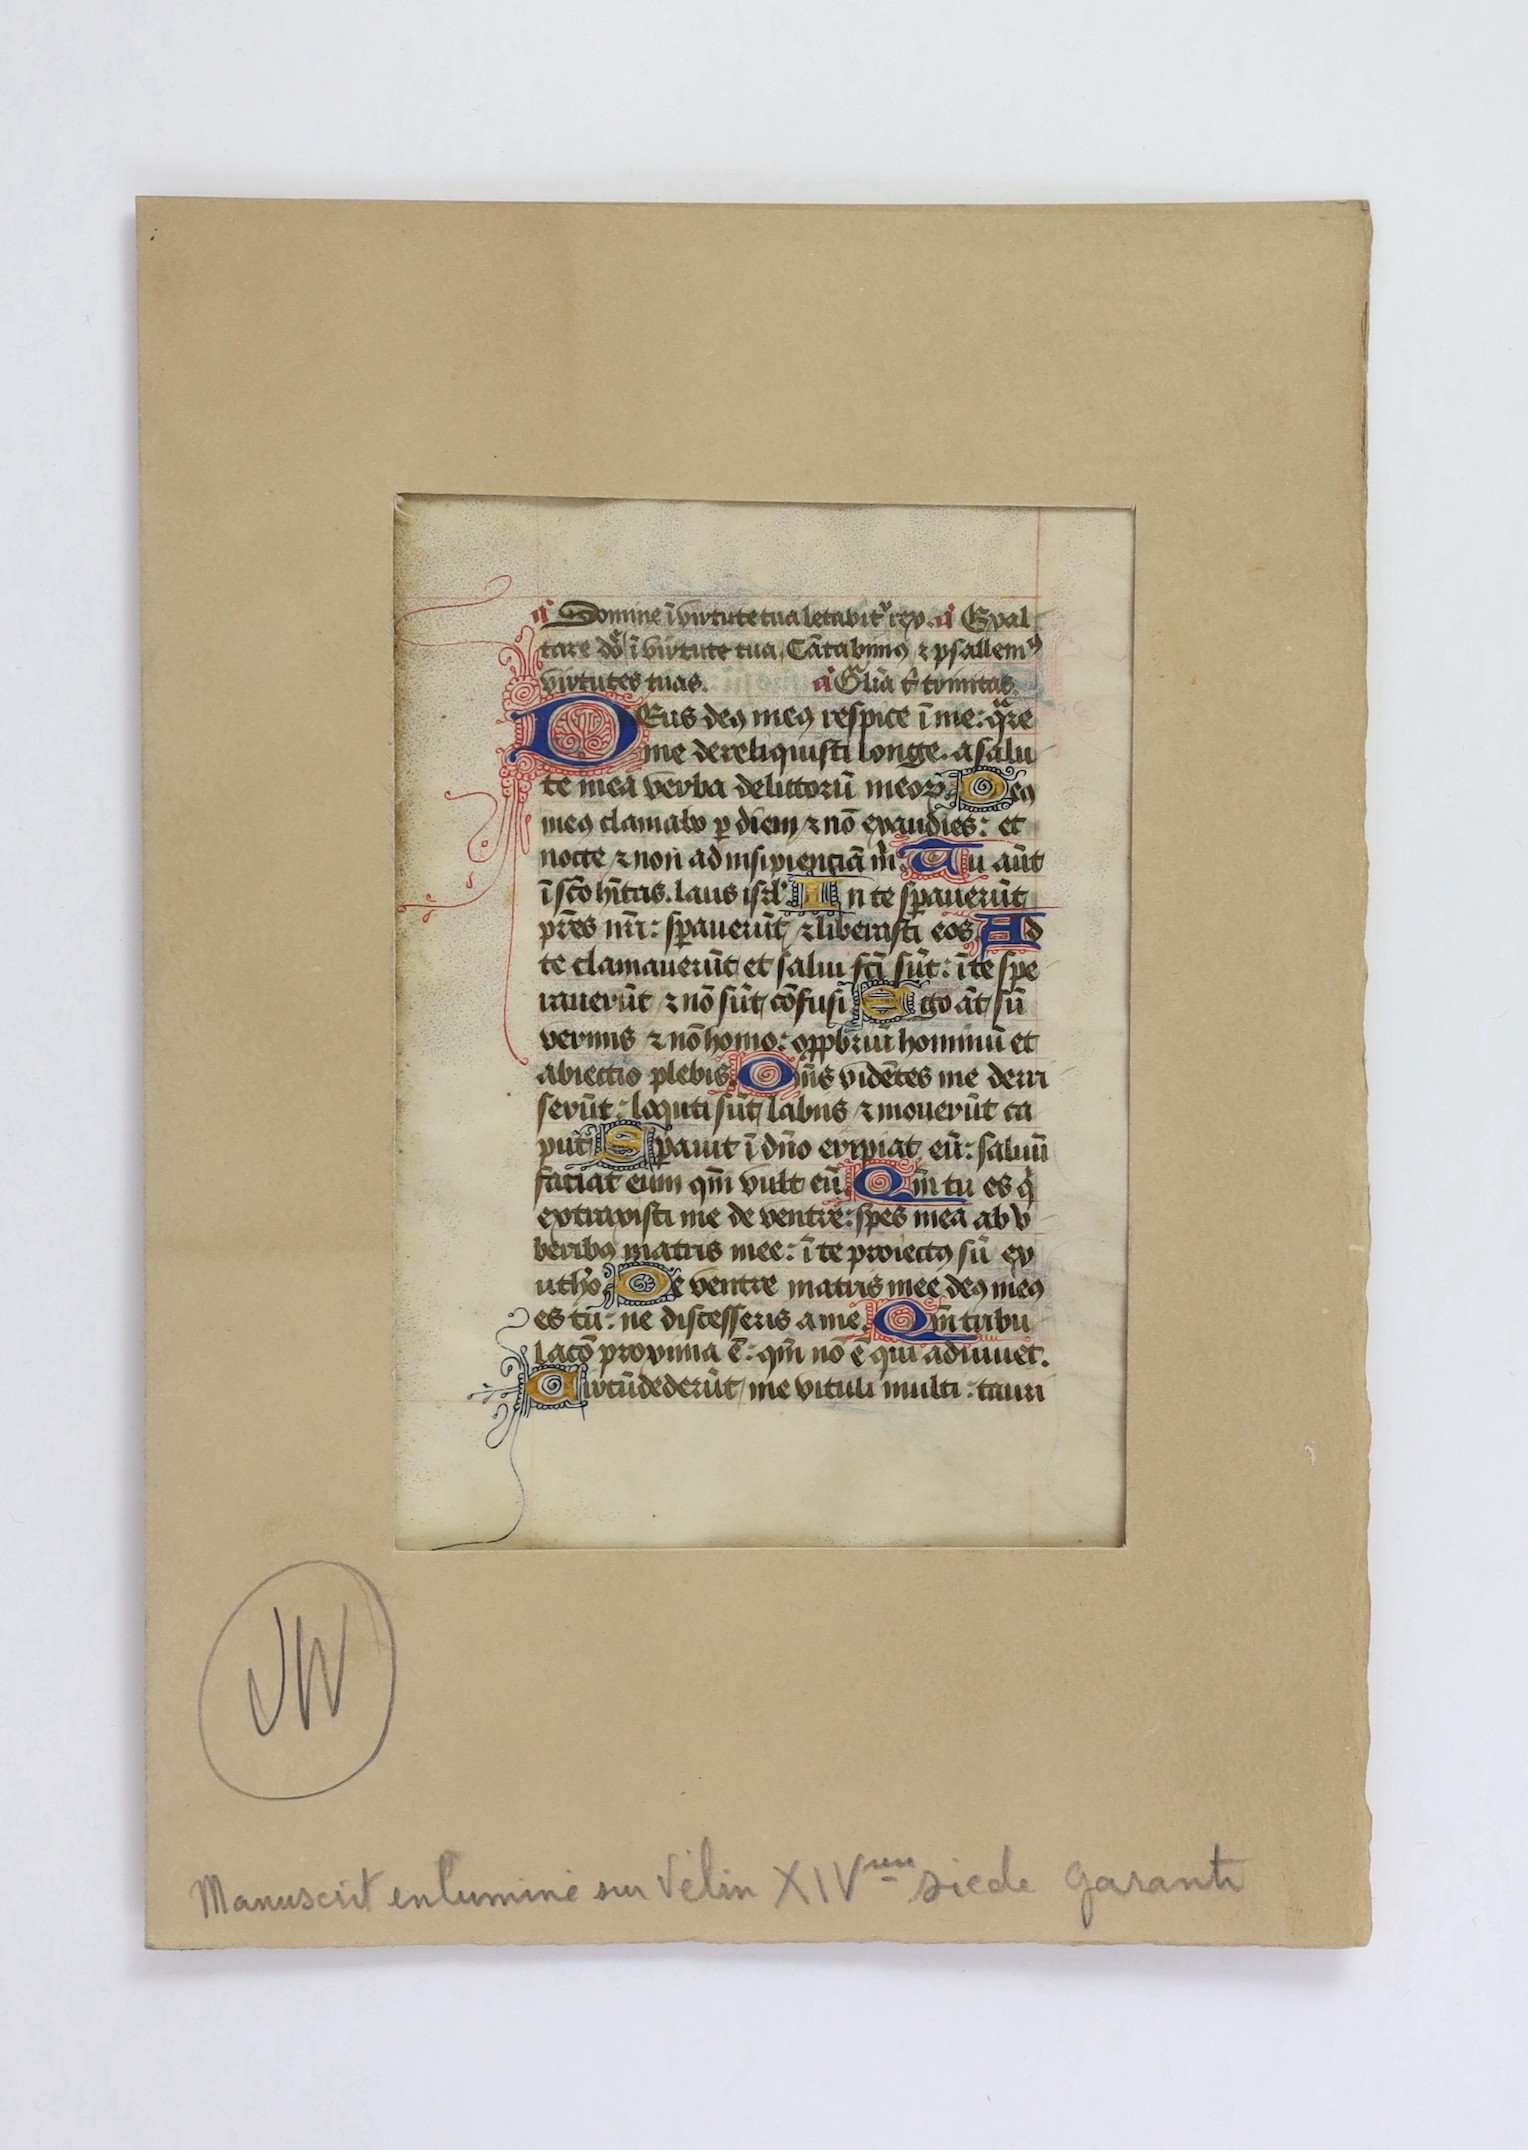 a̾ Domine ī virtute tua letabit᷑ rex. a̾ Exal
tare dn̄e ī virtute tua. Cātabimꝰ ⁊ psallemꝰ
virtutes tuas. a̾ Gl̄ia t̄ trinitas.
Deus deꝰ meꝰ respice ī me: quare
me dereliquisti longe. a salu
te mea verba delictorū meoꝝ. Deꝰ
meꝰ clamabo ꝑ diem ⁊ nō exaudies: et
nocte ⁊ non ad insipienciā m̄. Tu aūt
ī sc̄o hītas. laus isrl̄. In te sp̄auerūt
pr̄es nr̄i: sp̄auerūt ⁊ liberasti eos Ad
te clamauerūt et salui fc̄i sūt: ī te spe
rauerūt ⁊ nō sūt cōfusi Ego āt sū
vermis ⁊ nō homo: opp̄briū hominū et
abiectio plebis. Oīns vidētes me deri
serūt: loquti sūt labiis ⁊ mouerūt ca
put Sp̄auit ī dn̄o eripiat eū: saluū
faciat eum qm̄ vult eū. Qm̄ tu es q̄
extraxisti me de ventre: spes mea ab v
beribꝰ matris mee: ī te proiectꝰ sū ex
utḣo De ventre matris mee deꝰ meꝰ
es tu: ne discesseris a me. Qm̄ tribu
lacō proxima ē: qm̄ nō ē qui adiuuet.
Circūdederūt me vituli multi: tauri
JW
Manuscrit enluminé sur Vélin XIVme siècle garanti